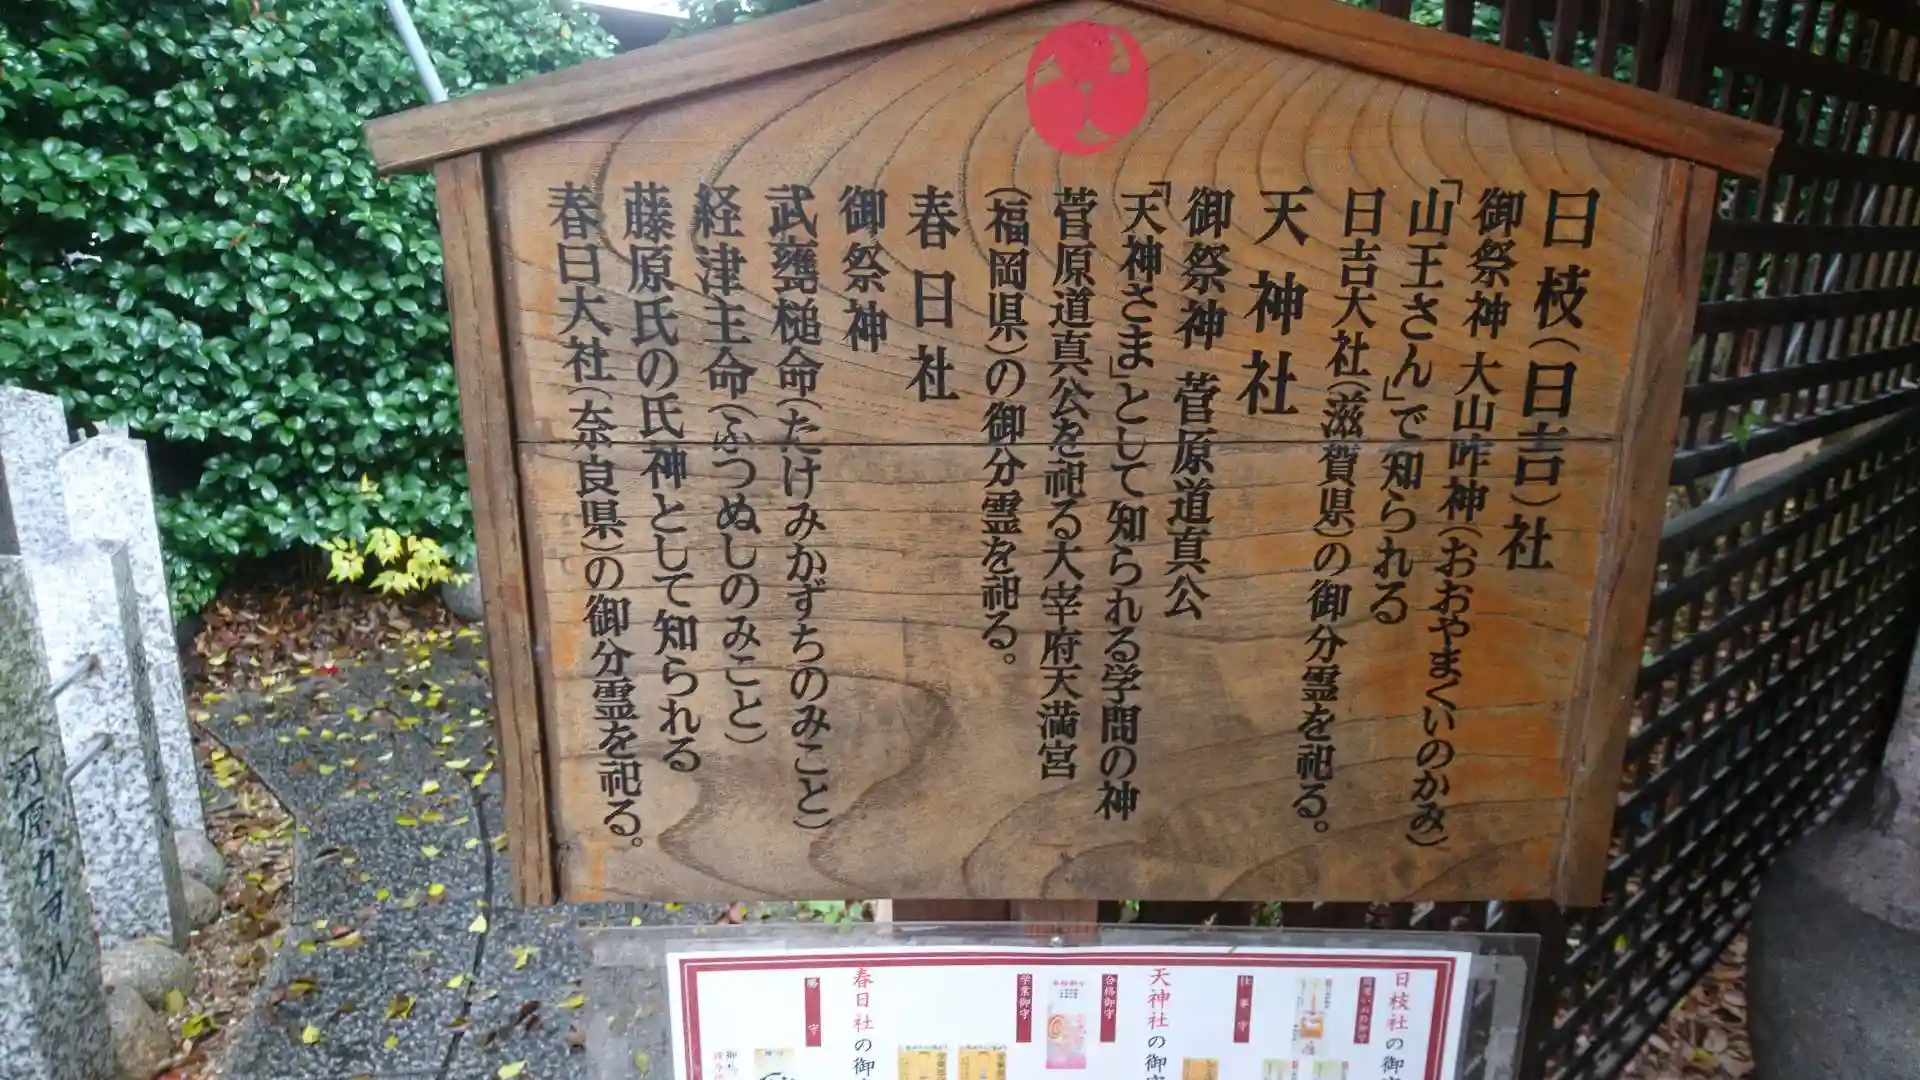 日枝(日吉)社
御祭神 大山咋神(おおやまくいのかみ)
「山王さん」で知られる
日吉大社(滋賀県)の御分霊を祀る。
天神社
御祭神 菅原道真公
「天神さま」として知られる学問の神
菅原道真公を祀る大宰府天満宮
(福岡県)の御分霊を祀る。
春日社
御祭神
武甕槌命(たけみかずちのみこと)
経津主命(ふつぬしのみこと)
藤原氏の氏神として知られる
春日大社(奈良県)の御分霊を祀る。
日枝社の御守
仕事守
天神社の御守
合格御守
学業御守
春日社の御
勝守
河原カヲル